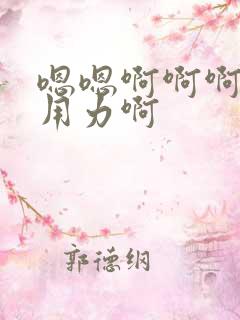 嗯嗯啊啊啊
用力啊
郭德纲